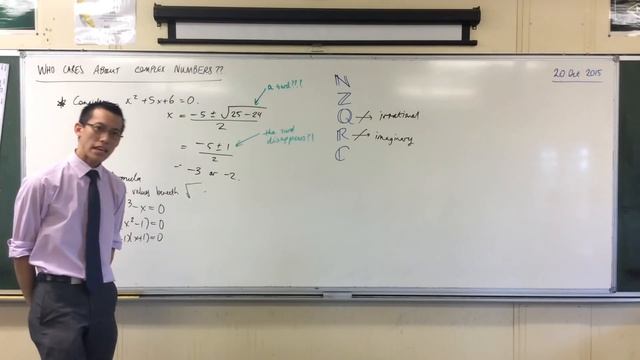 WHO CARES ABOUT COMPLEX NUMBERS??
20 Oct 2015
* Consider x² + 5x + 6 = 0.
x = (-5 ± √(25 - 24))/2
a surd?!?!
= (-5 ± 1)/2
the surd
disappears?!
-3 or -2.
values beneath √
³ - x = 0
x² - 1) = 0
1)(x+1) = 0
ℕ
ℤ
ℚ → irrational
ℝ → imaginary
ℂ